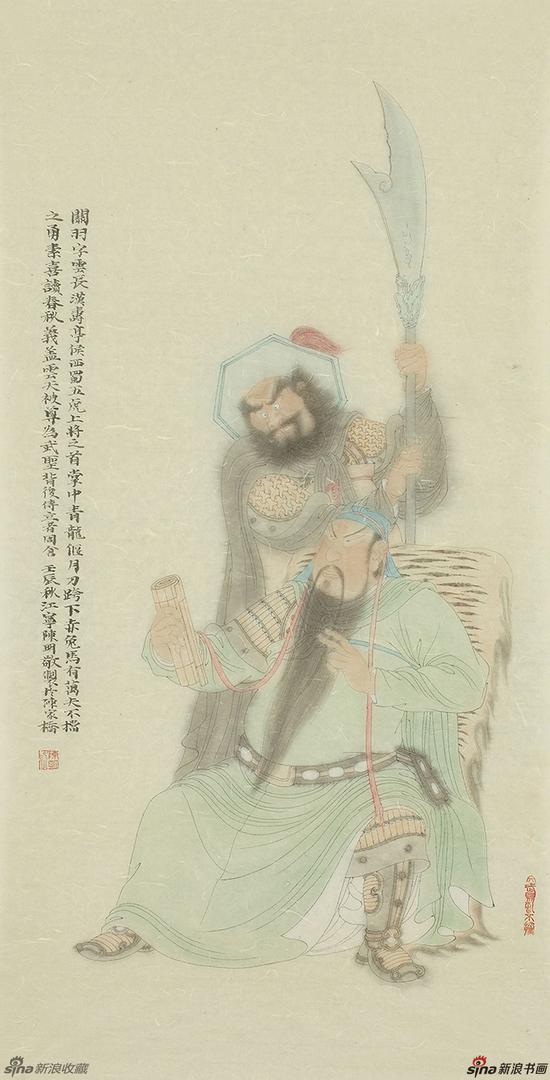 關羽字雲長漢壽亭侯西蜀五虎上將之首掌中青龍偃月刀跨下赤兔馬有萬夫不擋
之勇素喜讀春秋義蓋雲天被尊為武聖背後侍立者周倉 壬辰秋江寧陳明敬製於陳家橋
sina新浪收藏
sina新浪书画